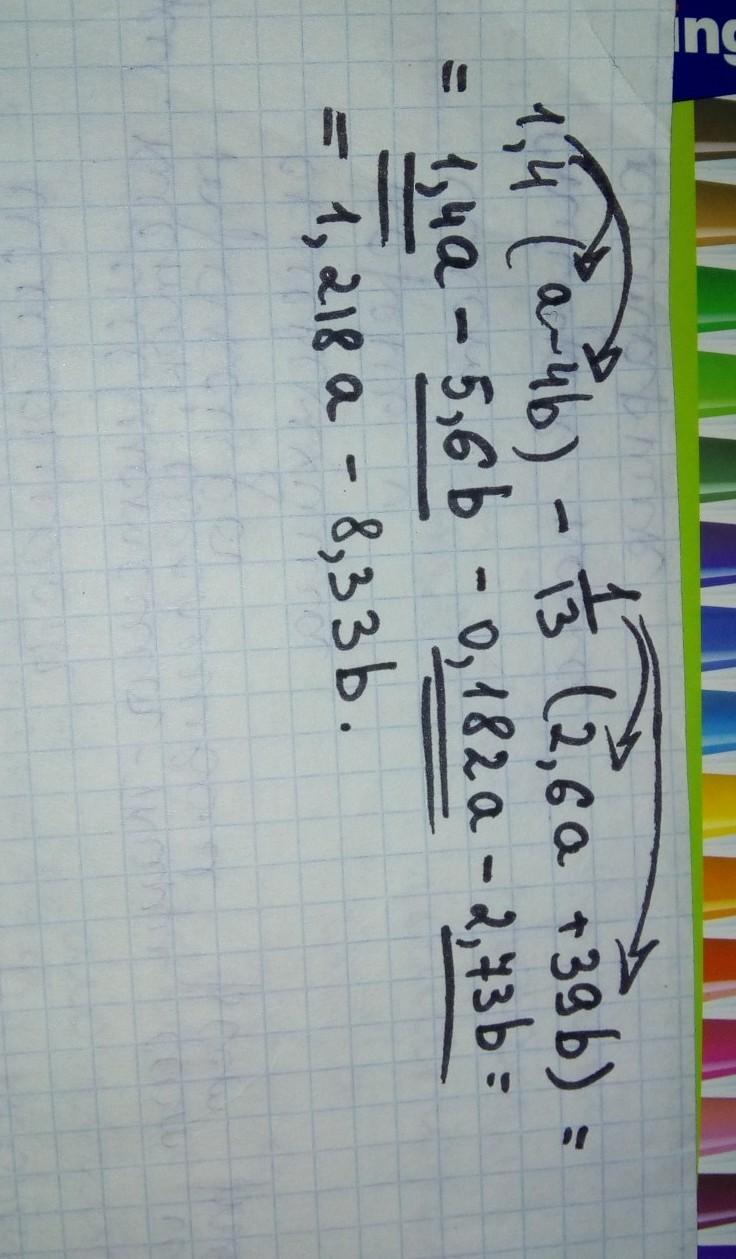 ing
1,4 (a-4b) - 1/13 (2,6a +39b) =
= 1,4a - 5,6b - 0,182a - 2,73b =
= 1,218a - 8,33b.